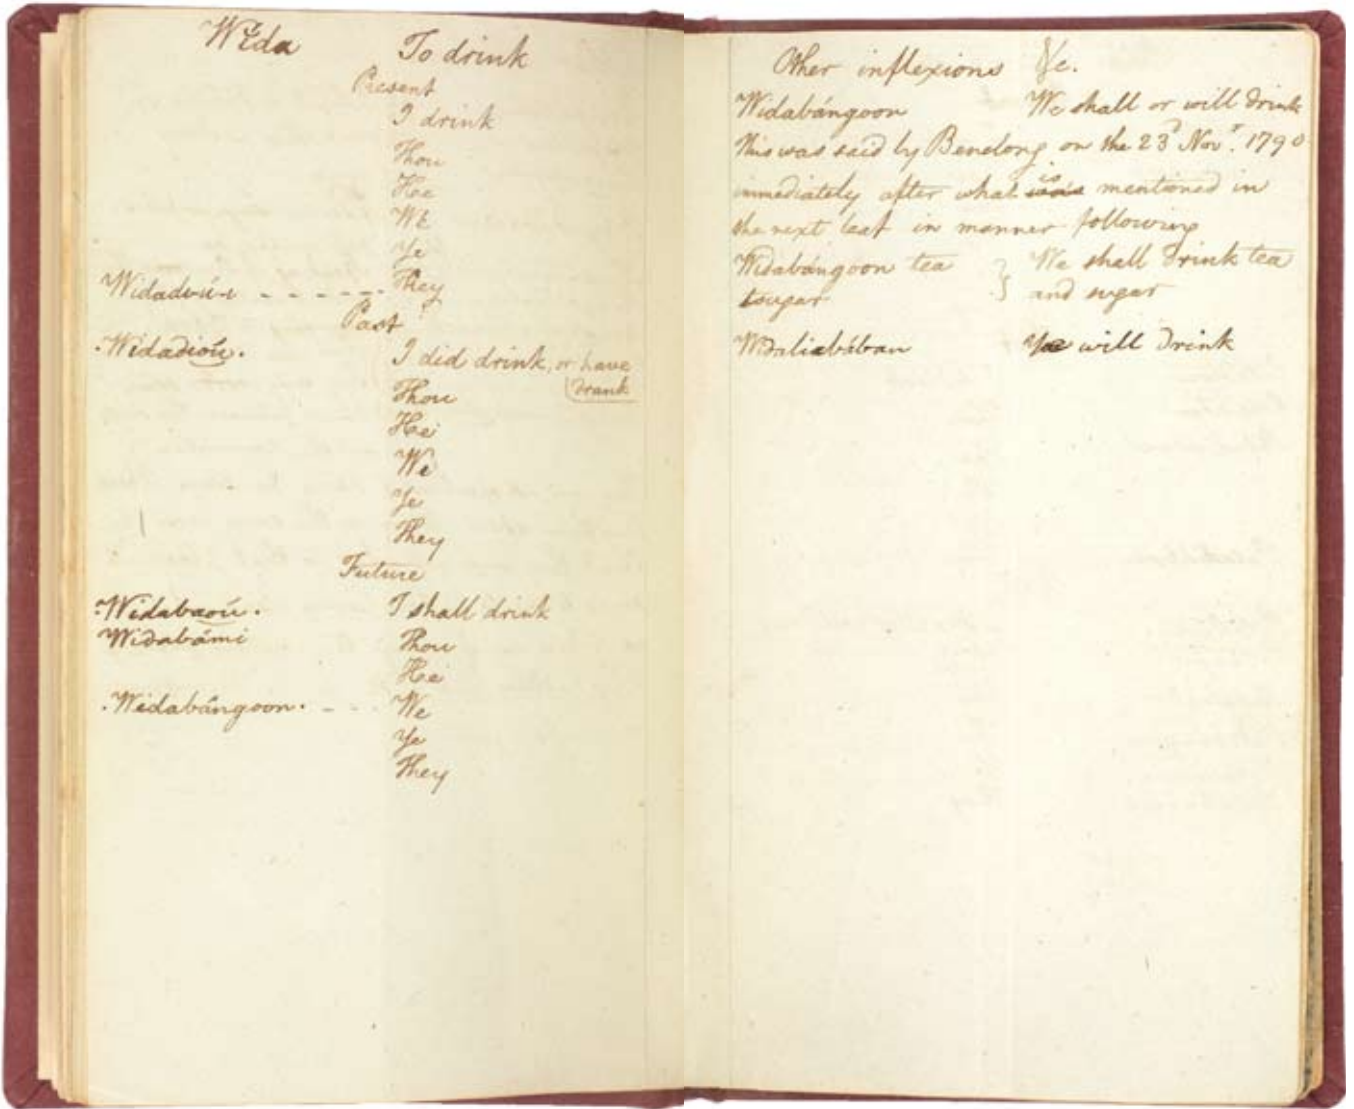 Wĕda To drink
Present
I drink
Thou
He
We
Ye
Widadwí-i - - - - - - They
Past
.Widadiou. I did drink, or have
drank
Thou
He
We
Ye
They
Future
.Widabaou. I shall drink
Widabámi Thou
He
.Widabángoon. - - - We
Ye
They
Other inflexions &c.
Widabángoon We shall or will drink
This was said by Benelong on the 23d Novr. 1790
is
immediately after what was mentioned in
the next leaf in manner following
Widabángoon tea } We shall drink tea
tougar and sugar
Widaliabában Ye will drink